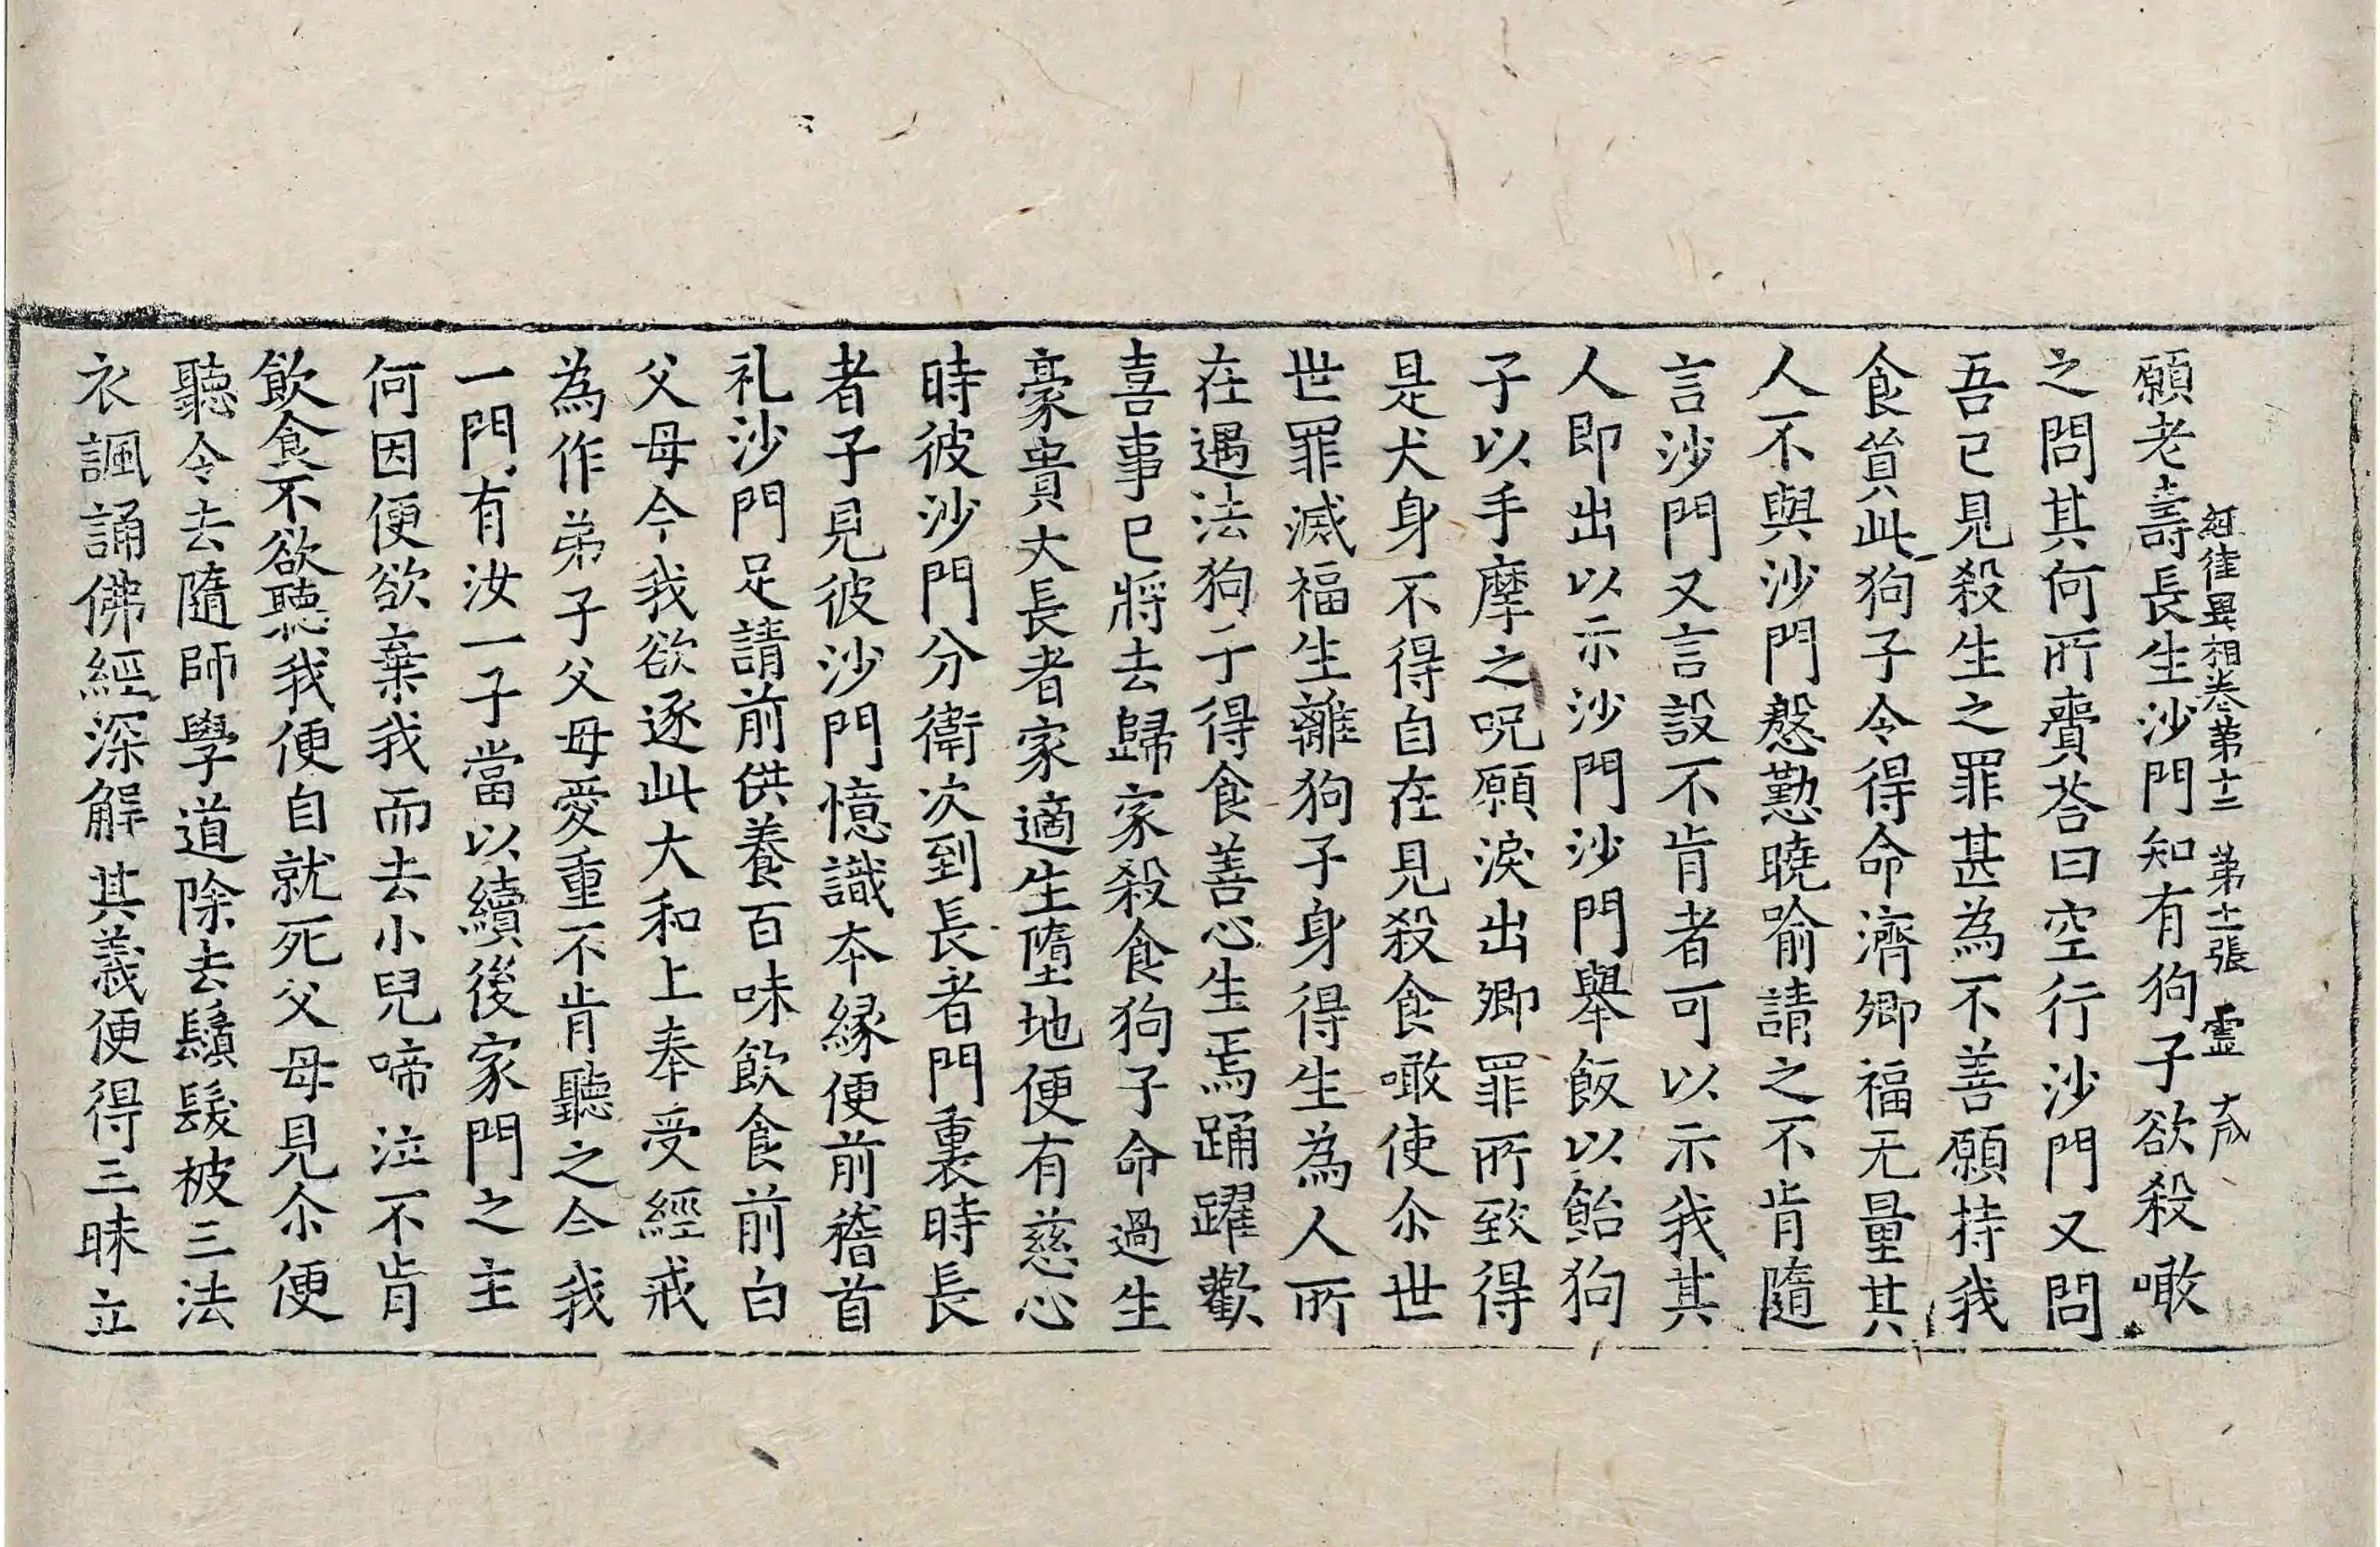 經律異相卷第十二 第十二張 靈
願老壽長生沙門知有狗子欲殺噉
之問其何所賷荅曰空行沙門又問
吾已見殺生之罪甚為不善願持我
食貿此狗子令得命濟卿福无量其
人不與沙門慇懃曉喻請之不肯隨
言沙門又言設不肯者可以示我其
人即出以示沙門沙門舉飯以飴狗
子以手摩之呪願淚出卿罪所致得
是犬身不得自在見殺食噉使尒世
世罪滅福生離狗子身得生為人所
在遇法狗子得食善心生焉踊躍歡
喜事已將去歸家殺食狗子命過生
豪貴大長者家適生墮地便有慈心
時彼沙門分衛次到長者門裏時長
者子見彼沙門憶識本緣便前稽首
礼沙門足請前供養百味飲食前白
父母今我欲逐此大和上奉受經戒
為作弟子父母愛重不肯聽之今我
一門有汝一子當以續後家門之主
何因便欲棄我而去小兒啼泣不肯
飲食不欲聽我便自就死父母見尒便
聽令去隨師學道除去鬚髮被三法
衣諷誦佛經深解其義便得三昧立